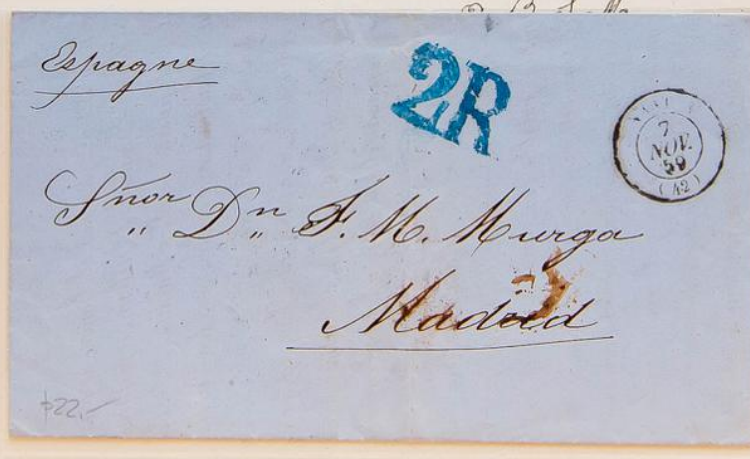 Espagne
2R
7
NOV.
59
(42)
Sñor Dn F. M. Murga
Madrid
$22.-